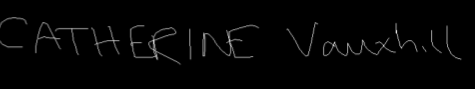 CATHERINE Vauxhill